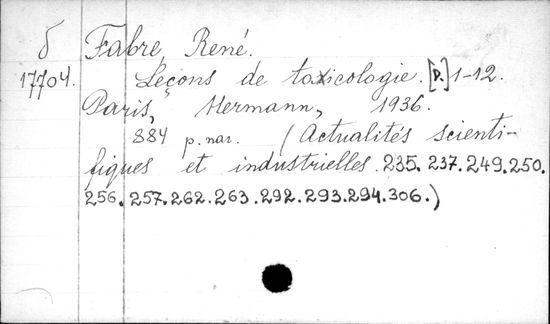 δ Fabre, René.
17704. Leçons de toxicologie. [P.] 1-12.
Paris, Hermann, 1936.
884 p. nar. (Actualités scienti-
fiques et industrielles. 235. 237. 249. 250.
256. 257. 262. 263. 292. 293. 294. 306.)